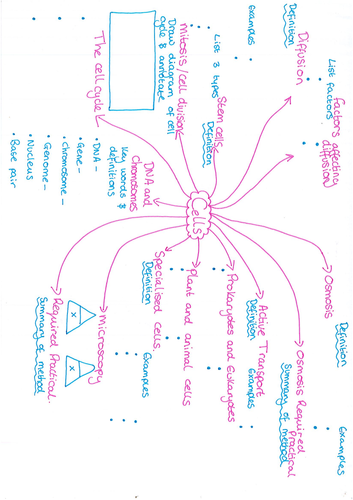 Cells
Diffusion
Definition
Examples
Factors affecting
diffusion
List factors
Osmosis
Definition
Examples
Osmosis Required
practical
Summary of method
Active Transport
Definition
Examples
Prokaryotes and Eukaryotes
Plant and animal cells
Specialised cells
Definition
Examples
microscopy
Required Practical.
Summary of method
x
x
DNA and
chromosomes
Key words &
definitions
DNA -
Gene -
Chromosome -
Genome -
Nucleus
Base pair
The cell cycle
mitosis/cell division
Draw diagram of cell
cycle & annotate
Stem cells
Definition
List 3 types